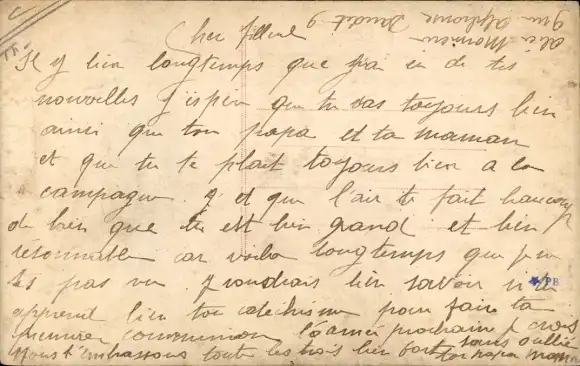 Cher filleul
Il y bien longtemps que j'ai eu de tes
nouvelles j'espere que tu vas toujours bien
ainsi que ton papa et ta maman
et que tu te plait toujours bien a la
campagne y et que l'air te fait baucoup
de bien que tu est bien grand et bien
résonnable car voila longtemps que je ne
tes pas vu y voudrais bien savoir si tu
apprend bien ton catéchisme pour faire ta
premiere communion l'année prochain je crois
Nous t'embrassons toute les trois bien fort sans oublié
ton papa maman
Alice Monnier
9 rue Alphonse Daudet 9
PB